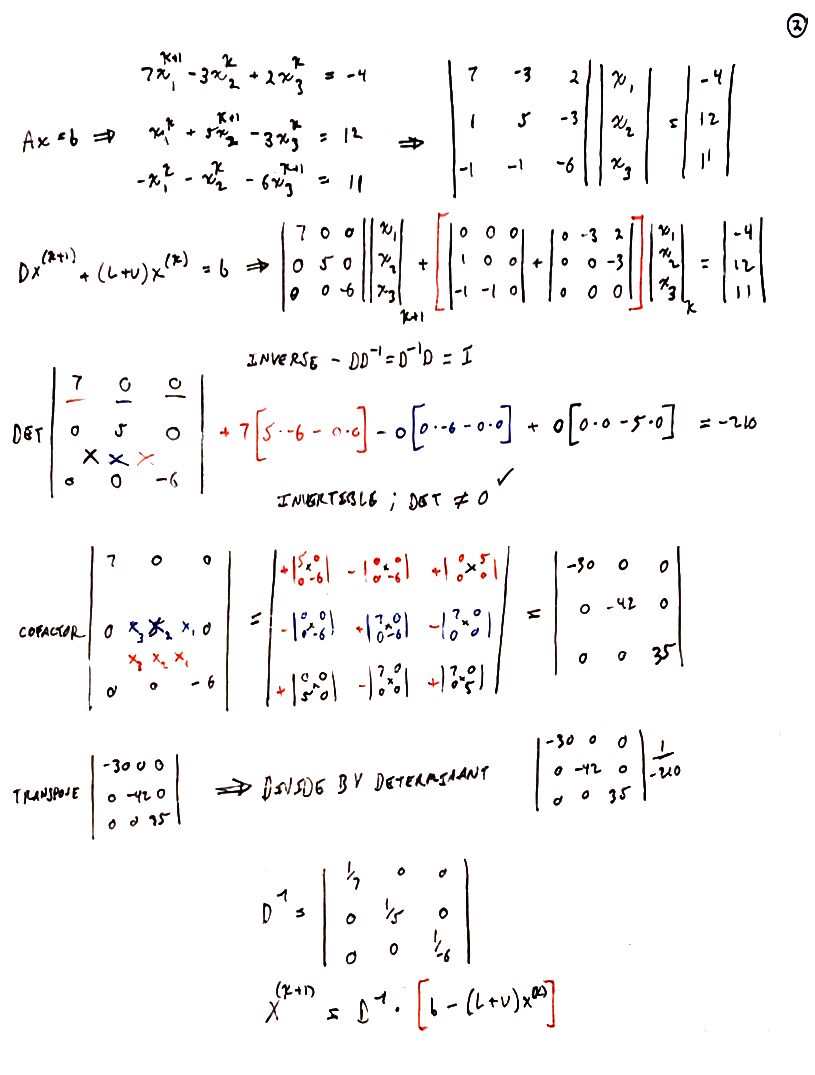 2
7x₁^(k+1) - 3x₂^k + 2x₃^k = -4
Ax = b ⇒ x₁^k + 5x₂^(k+1) - 3x₃^k = 12 ⇒ |7 -3 2; 1 5 -3; -1 -1 -6| |x₁; x₂; x₃| = |-4; 12; 11|
-x₁^2 - x₂^k - 6x₃^(k+1) = 11
Dx^(k+1) + (L+U)x^(k) = b ⇒ |7 0 0; 0 5 0; 0 0 -6| |x₁; x₂; x₃|_(k+1) + [|0 0 0; 1 0 0; -1 -1 0| + |0 -3 2; 0 0 -3; 0 0 0|] |x₁; x₂; x₃|_k = |-4; 12; 11|
INVERSE - DD⁻¹ = D⁻¹D = I
DET |7 0 0; 0 5 0; 0 0 -6| + 7[5·-6 - 0·0] - 0[0·-6 - 0·0] + 0[0·0 - 5·0] = -210
INVERTIBLE ; DET ≠ 0 ✓
COFACTOR |7 0 0; 0 x₃ x₂ x₁ 0; x₃ x₂ x₁; 0 0 -6| = |+|5 0; 0 -6| -|0 0; 0 -6| +|0 5; 0 0|; -|0 0; 0 -6| +|7 0; 0 -6| -|7 0; 0 0|; +|0 0; 5 0| -|7 0; 0 0| +|7 0; 0 5|| = |-30 0 0; 0 -42 0; 0 0 35|
TRANSPOSE |-30 0 0; 0 -42 0; 0 0 35| ⇒ DIVIDE BY DETERMINANT |-30 0 0; 0 -42 0; 0 0 35| 1/-210
D⁻¹ = |1/7 0 0; 0 1/5 0; 0 0 1/-6|
X^(k+1) = D⁻¹ · [b - (L+U)x^(k)]